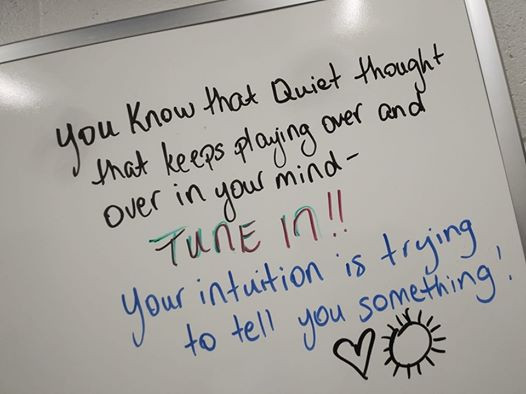 you Know that Quiet thought
that keeps playing over and
over in your mind-
TUNE IN!!
your intuition is trying
to tell you something!